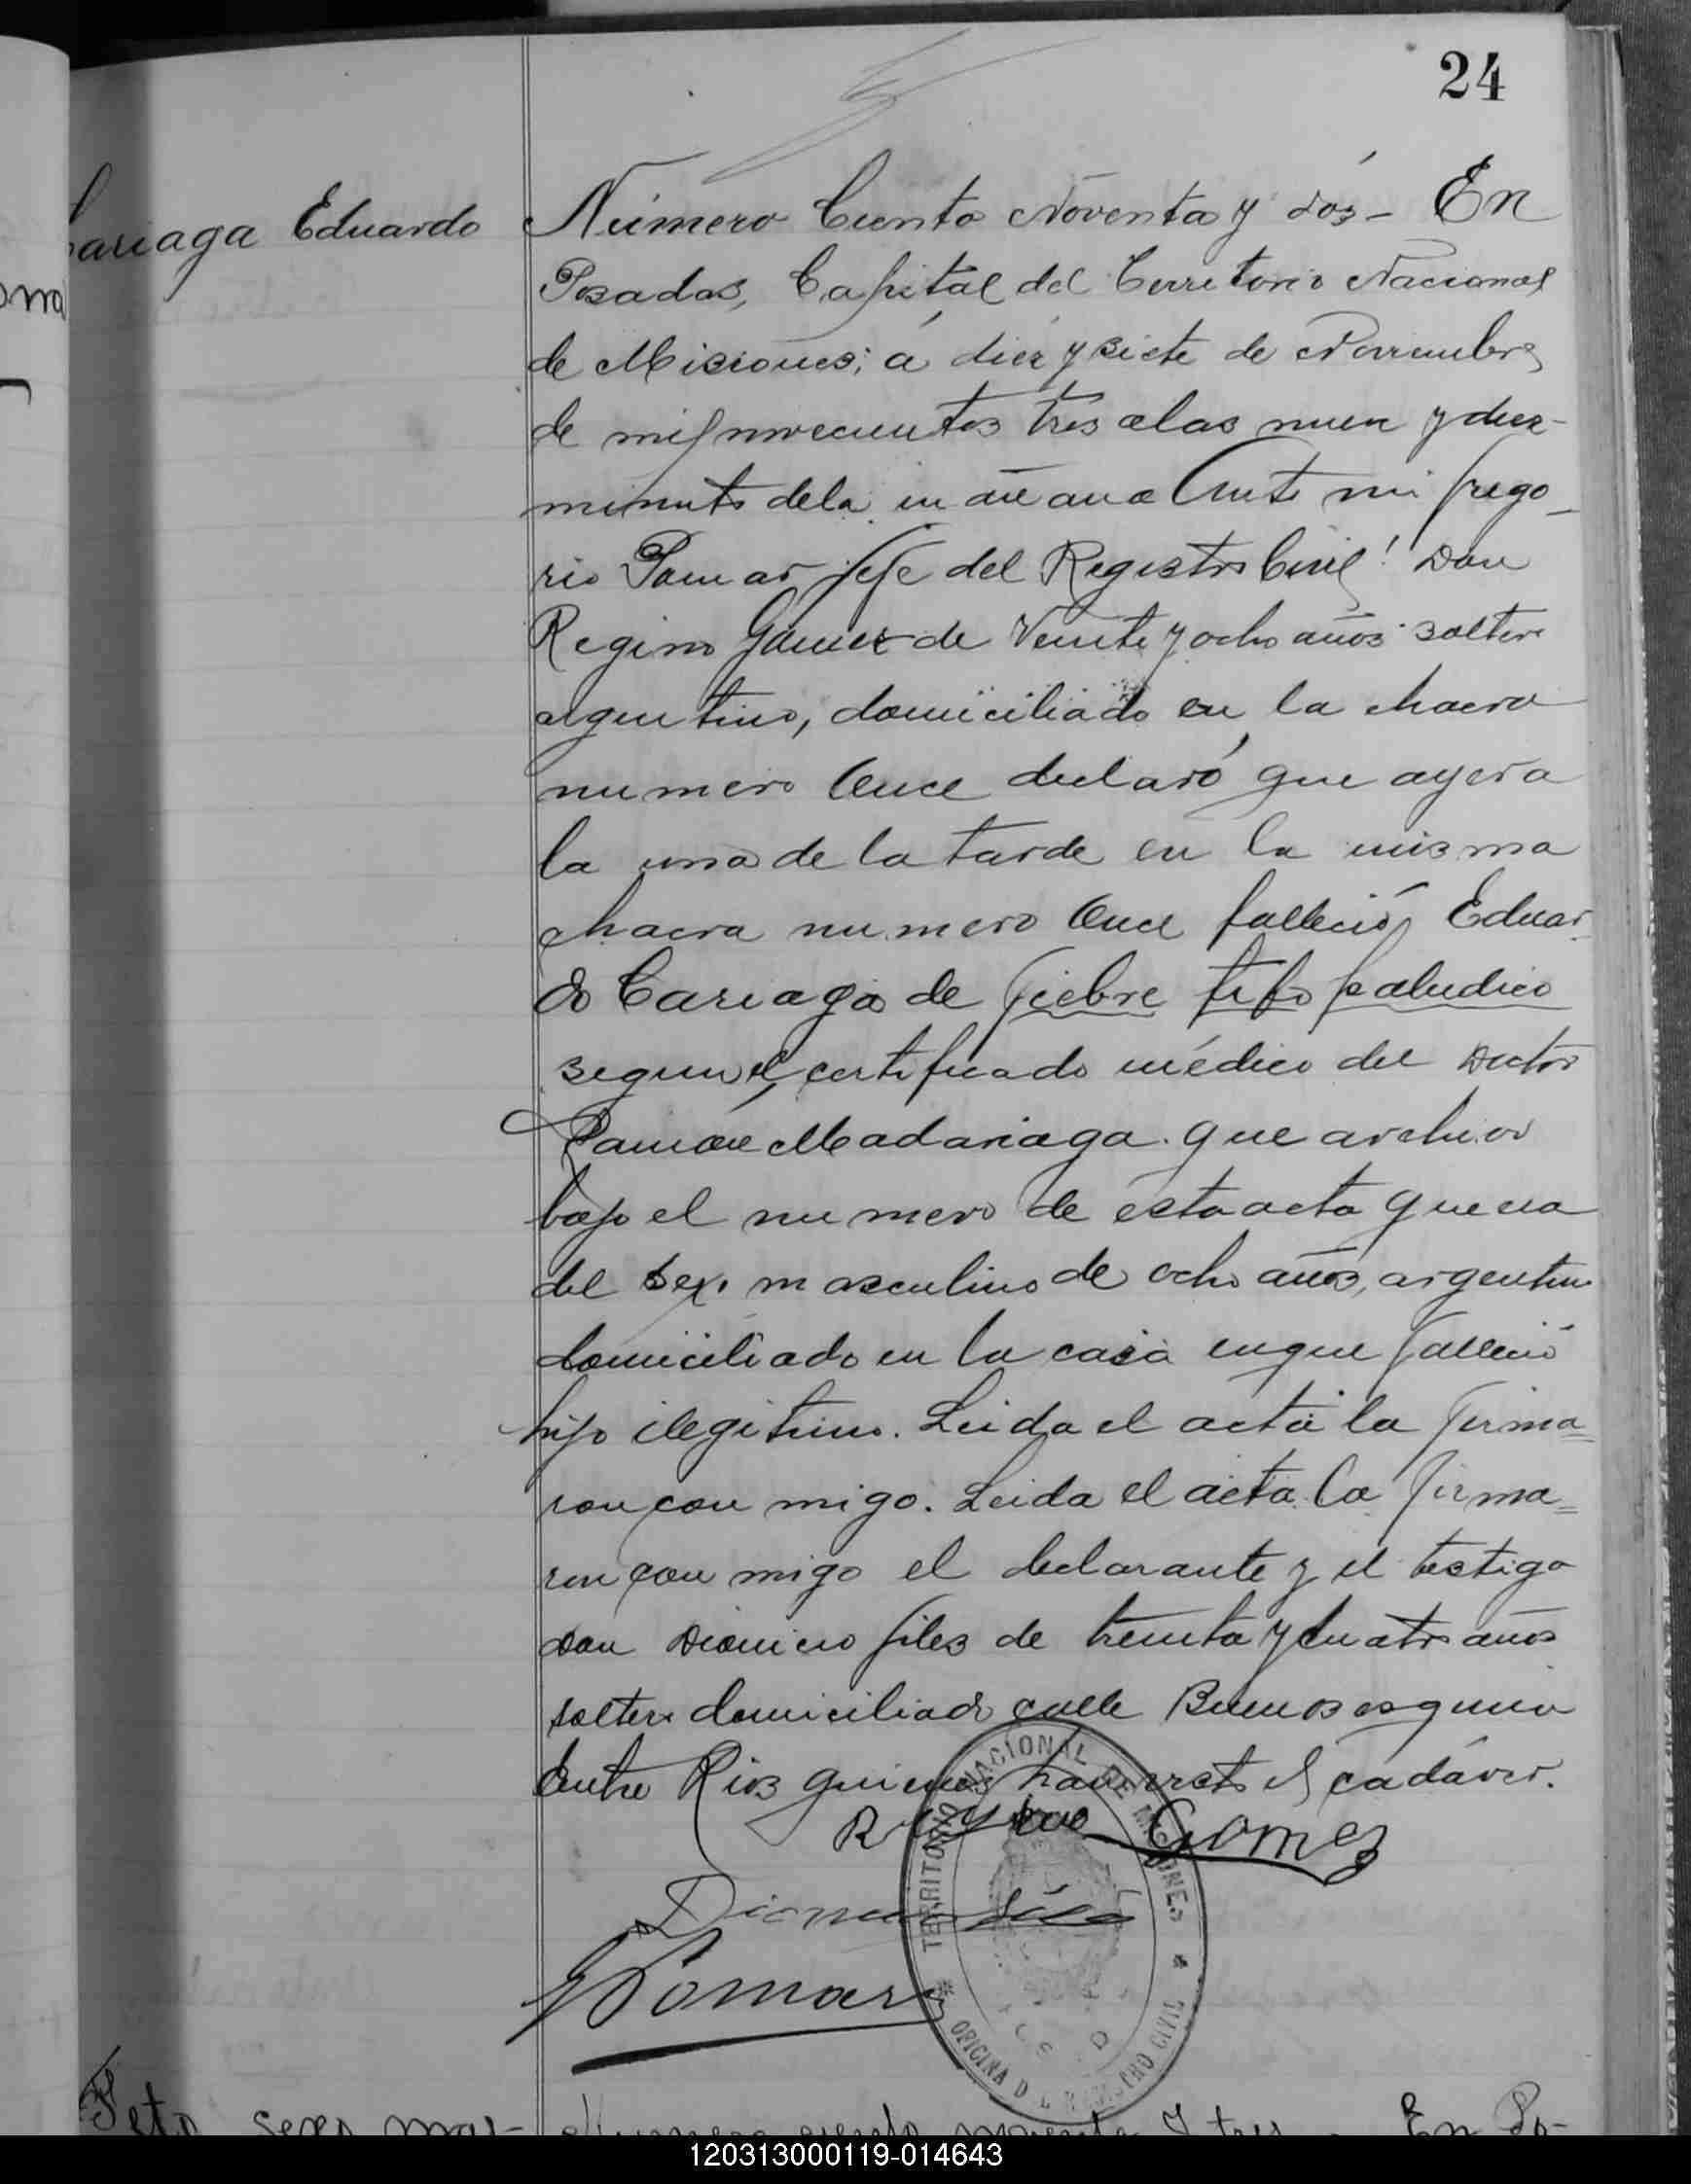 24
Cariaga Eduardo
Número Ciento Noventa y dós - En
Posadas, Capital del Territorio Nacional
de Misiones; á diez y siete de Noviembre
de mil novecientos tres a las nueve y diez
minutos dela mañana Ante mi Grego-
rio Pomar Jefe del Registro Civil! Don
Regino Gomez de Veinte y ocho años soltero
argentino, domiciliado en la chacra
numero Once declaró que ayer a
la una de la tarde en la misma
chacra numero Once falleció Eduar-
do Cariaga de fiebre tifo paludico
segun el certificado médico del Doctor
Ramón Madariaga que archivo
bajo el numero de ésta acta que era
del sexo masculino de ocho años, argentino
domiciliado en la casa en que falleció
hijo ilegitimo. Leida el acta la firma=
ron con migo. Leida el acta la firma=
ron con migo el declarante y el testigo
don Dionicio Giles de treinta y cuatro años
soltero domiciliado calle Buenos esquina
Entre Rios quienes han visto el cadáver.
Regino Gomez
G Pomar
TERRITORIO NACIONAL DE MISIONES
OFICINA DEL REGISTRO CIVIL
Feto sexo mas-
Numero ciento noventa y tres - En Po-
120313000119-014643